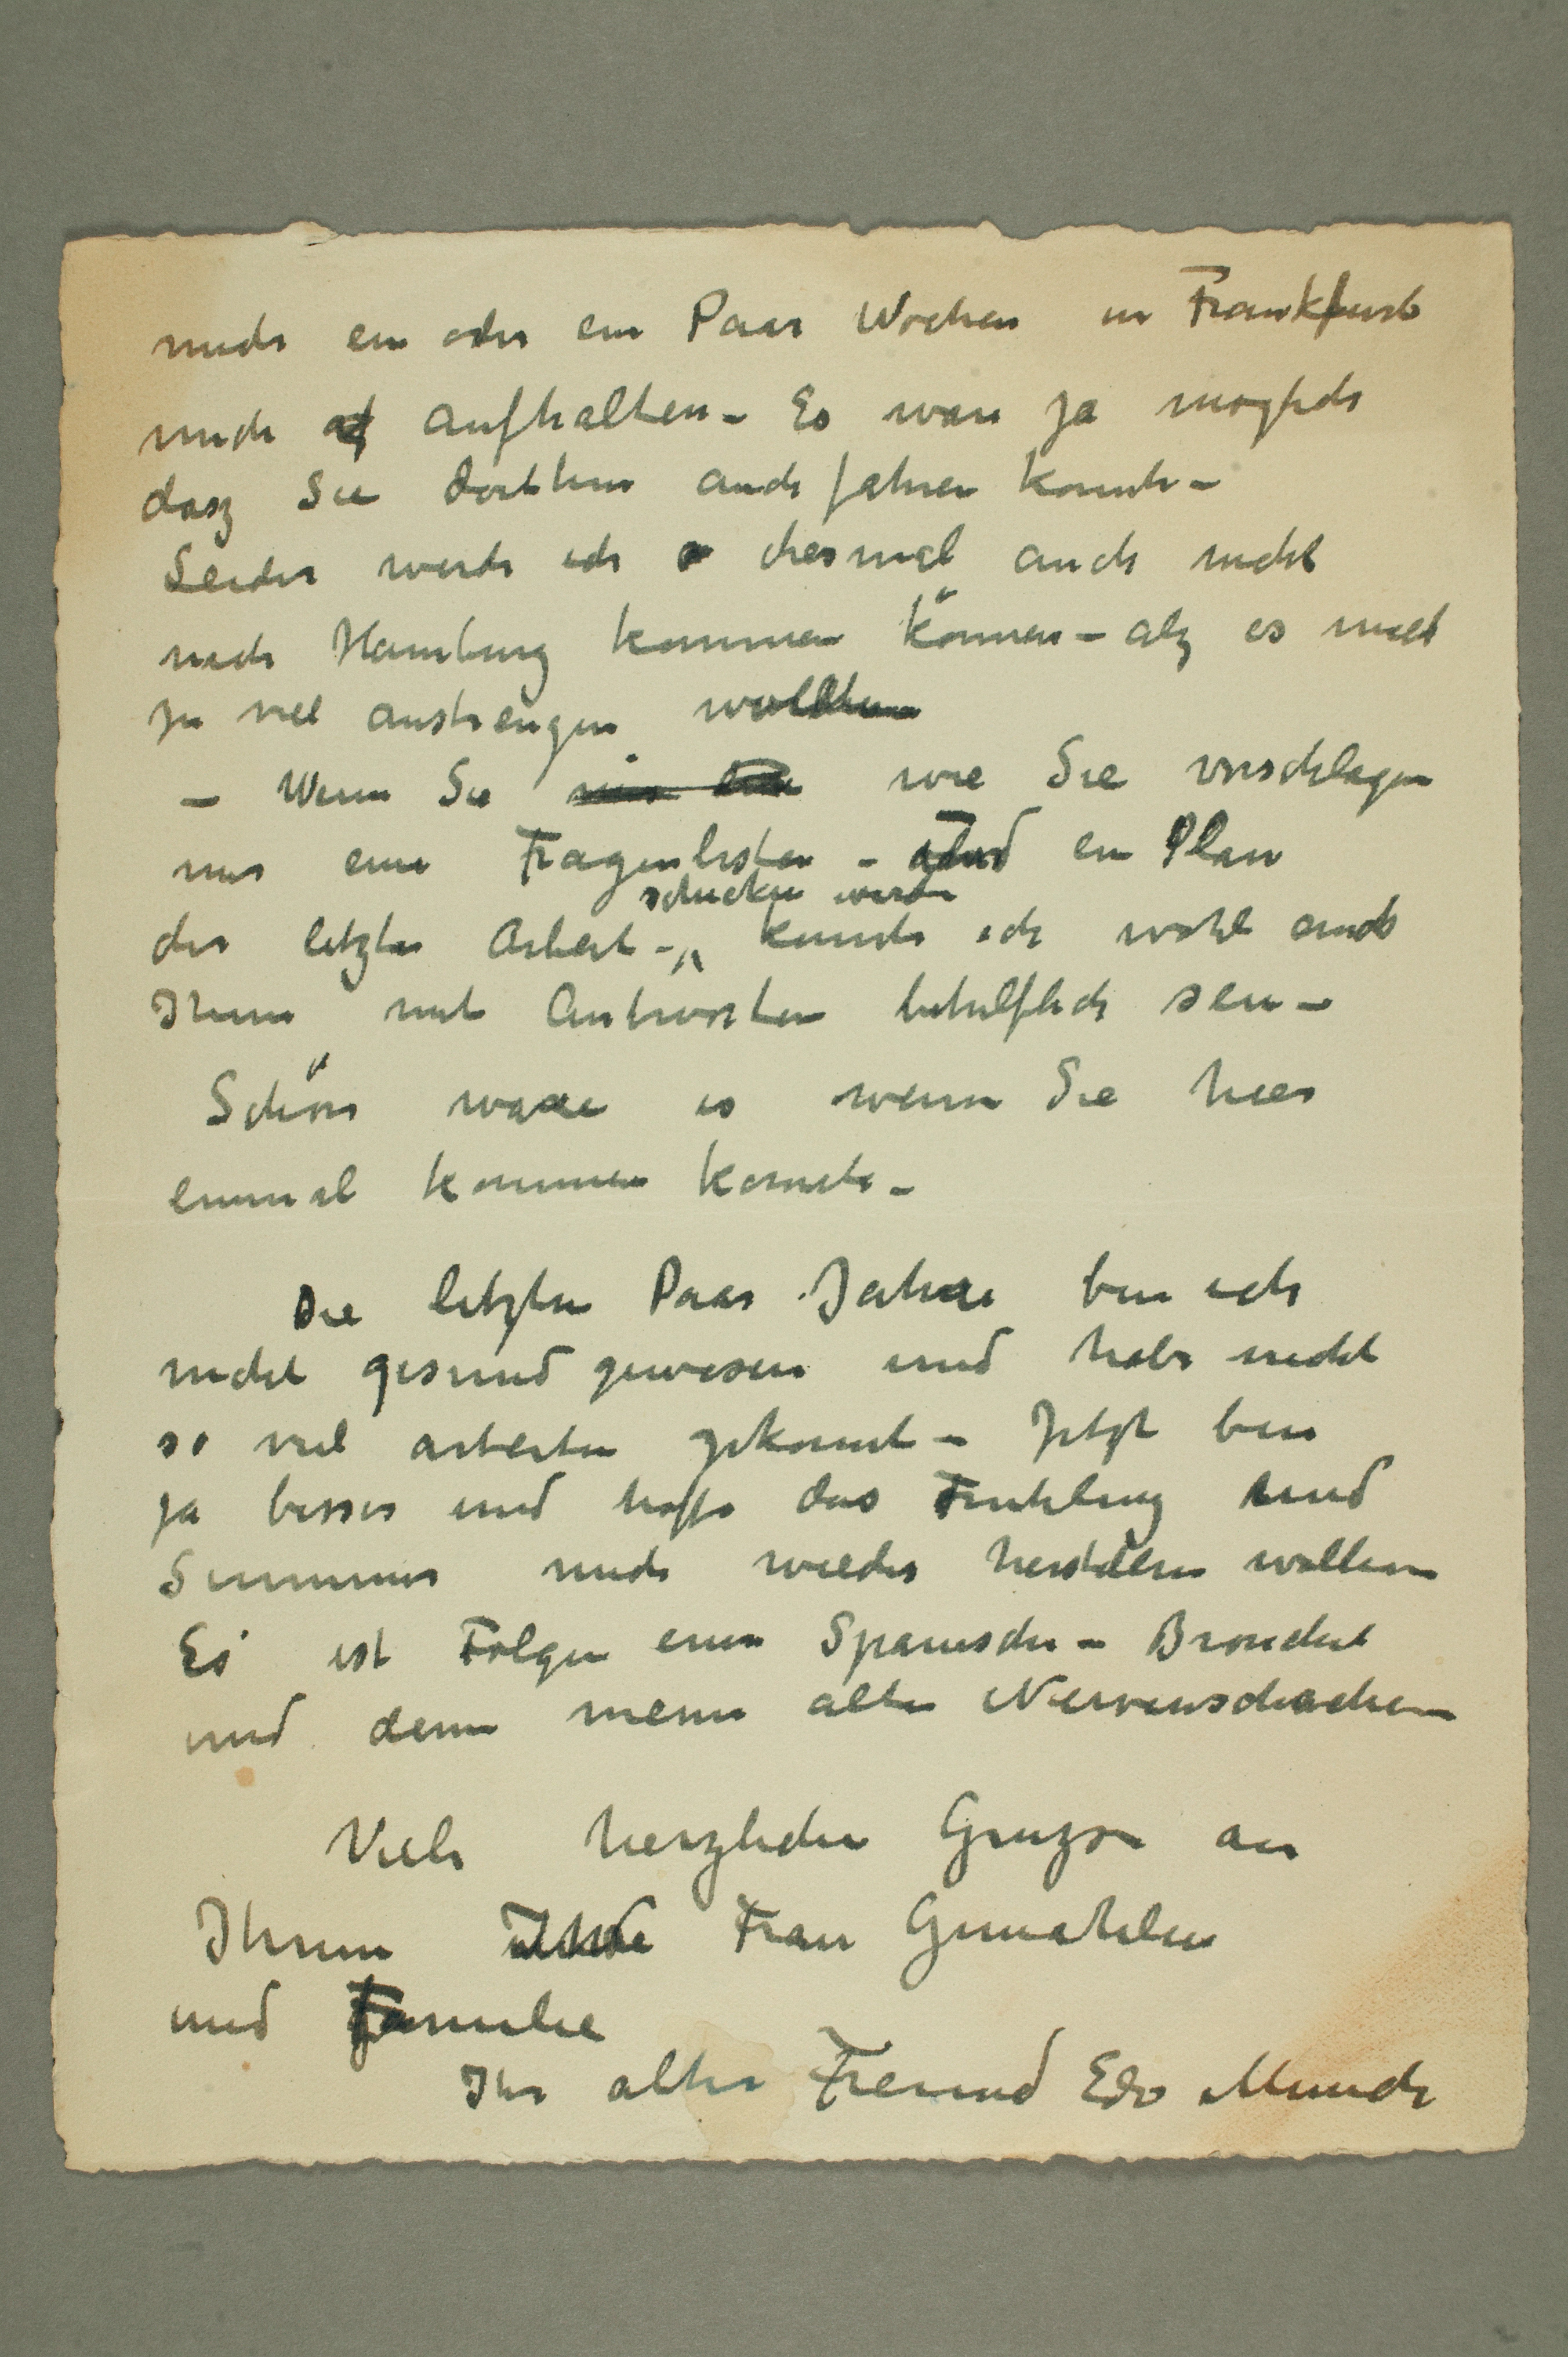 mich ein oder ein Paar Wochen in Frankfurt
mich aufhalten – Es ware ja moglich
dasz Sie dorthin auch fahren konnte –
Leider werde ich diesmal auch nicht
nach Hamburg kommen können – als es mich
zu viel anstrengen wollen
– Wenn Sie wie Sie vorschlagen
mir eine Fragenlisten – und ein Plan
schicken werde
der letzten Arbeit – konnte ich wohl auch
Ihnen mit Antworten behilflich sein –
Schön ware es wenn Sie hier
einmal kommen konnte –
Die letzten Paar Jahre bin ich
nicht gesund gewesen und habe nicht
so viel arbeiten gekonnt – Jetzt bin
ja besser und hoffe das Fruhling und
Summer mich wieder herstellen wollen
Es ist Folgen einer Spanischen – Bronchit
und denn meine alte Nervenschachen
Viele herzlichen Gruzse an
Ihnen Ihre Frau Gemahlin
und Familie
Ihr alter Freund Edv Munch